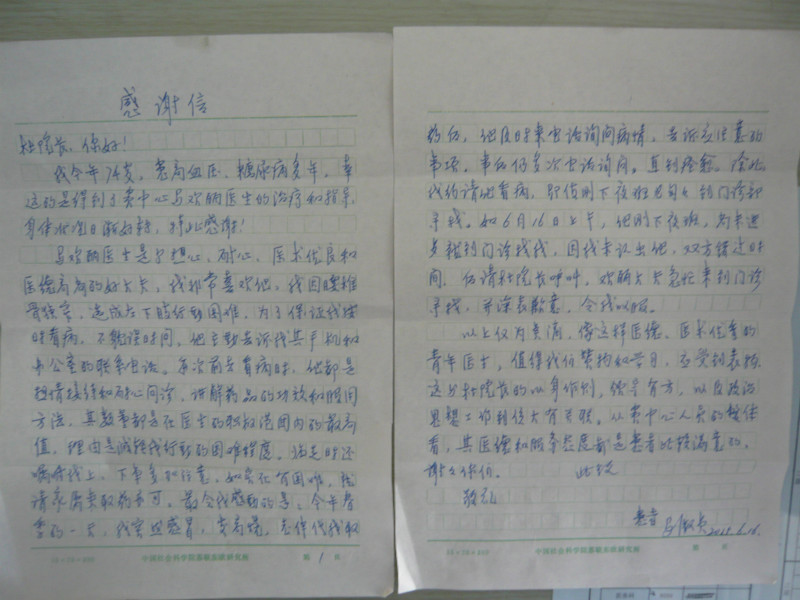 感谢信
杜院长，你好！
我今年74岁，患高血压、糖尿病多年，幸
运的是得到了贵中心马欢醑医生的治疗和指导，
身体状况日渐好转，特此感谢！
医生是个想心、耐心、医术优良和
医德高尚的好大夫，我非常喜欢他，我因腰椎
骨狭窄，造成左下肢行动困难，为了保证我按
时看病，不耽误时间，他主动告诉我其手机和
办公室的联系电话。每次前去看病时，他都是
热情接待和耐心问诊，讲解药品的功效和服用
方法，其数量都是在医生的职权范围内的最高
值，理由是减轻我行动的困难程度。临走时还
嘱咐我上、下车多加注意，如实在有困难，
请家属来取药亦可。最令我感动的是，今年春
季的一天，我突然感冒，发高烧，老伴代我取
药后，他及时来电话询问病情，告诉应注意的
事项，事后仍多次电话询问，直到痊愈。除此
我们请他看病，即值刚下夜班也马上到门诊部
寻找。如6月16日上午，他刚下夜班，
门诊找我，因我未认出他，双方错过时
间，仍请杜院长呼叫，大夫急忙来到门诊
寻找，并深表歉意，令我叹服。
以上仅为点滴，像这样医德、医术优秀的
青年医生，值得我们赞扬和学习，应受到表扬，
这与杜院长的以身作则，领导有方，以及政治
思想工作到位大有关联。从贵中心人员的整体
看，其医德和服务态度都是患者比较满意的，
谢谢你们。 此致
敬礼
患者
2011.6.16.
中国社会科学院
第 1 页
中国社会科学院
第 页